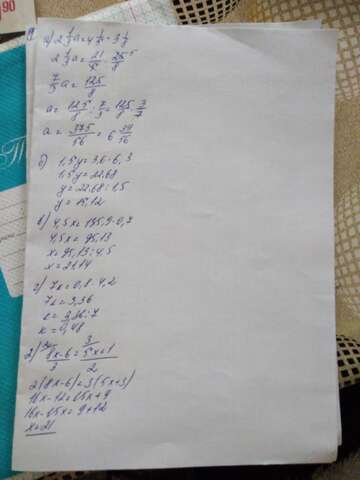 а) 2 1/3 a = 4 1/5 · 3 1/8
2 1/3 a = 21/5 · 25/8
7/3 a = 125/8
a = 125/8 : 7/3 = 125/8 · 3/7
a = 375/56 = 6 39/56
б) 1,5y = 3,6 · 6,3
1,5y = 22,68
y = 22,68 : 1,5
y = 15,12
в) 4,5x =
4,5x = 95,13
x = 95,13 : 4,5
x = 21,14
г) 7k = 0,8 · 4,2
7k = 3,36
k = 3,36 : 7
k = 0,48
2)
8x-6/3 =
2(8x-6) = 3(5x+3)
16x-12 = 15x+9
16x-15x = 9+12
x = 21